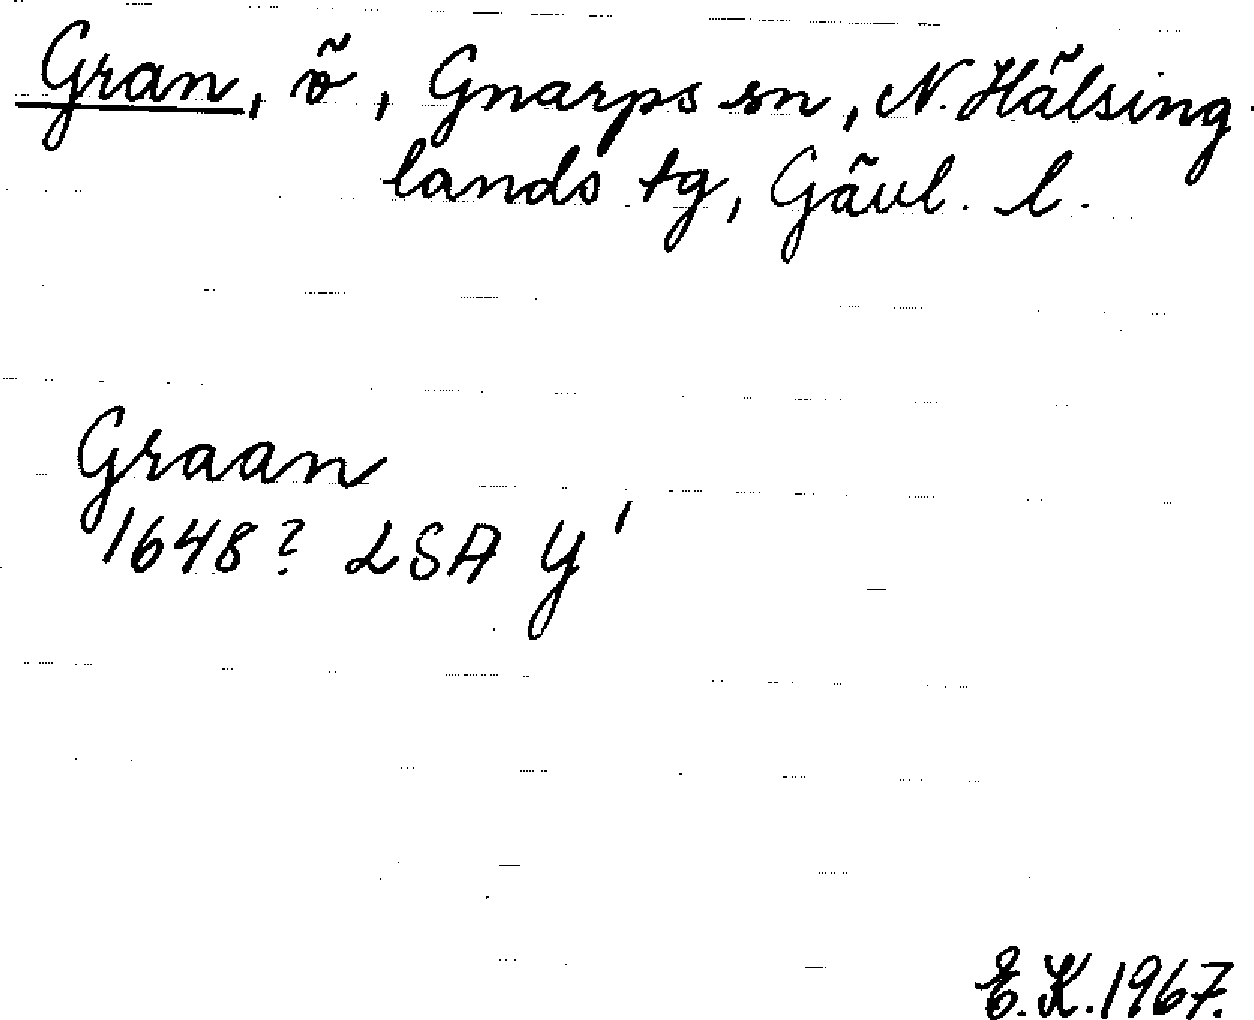 Gran, ö, Gnarps sn, N. Hälsing-
lands tg, Gävl. l.
Graan
1648? LSA Y 1
E.K. 1967.